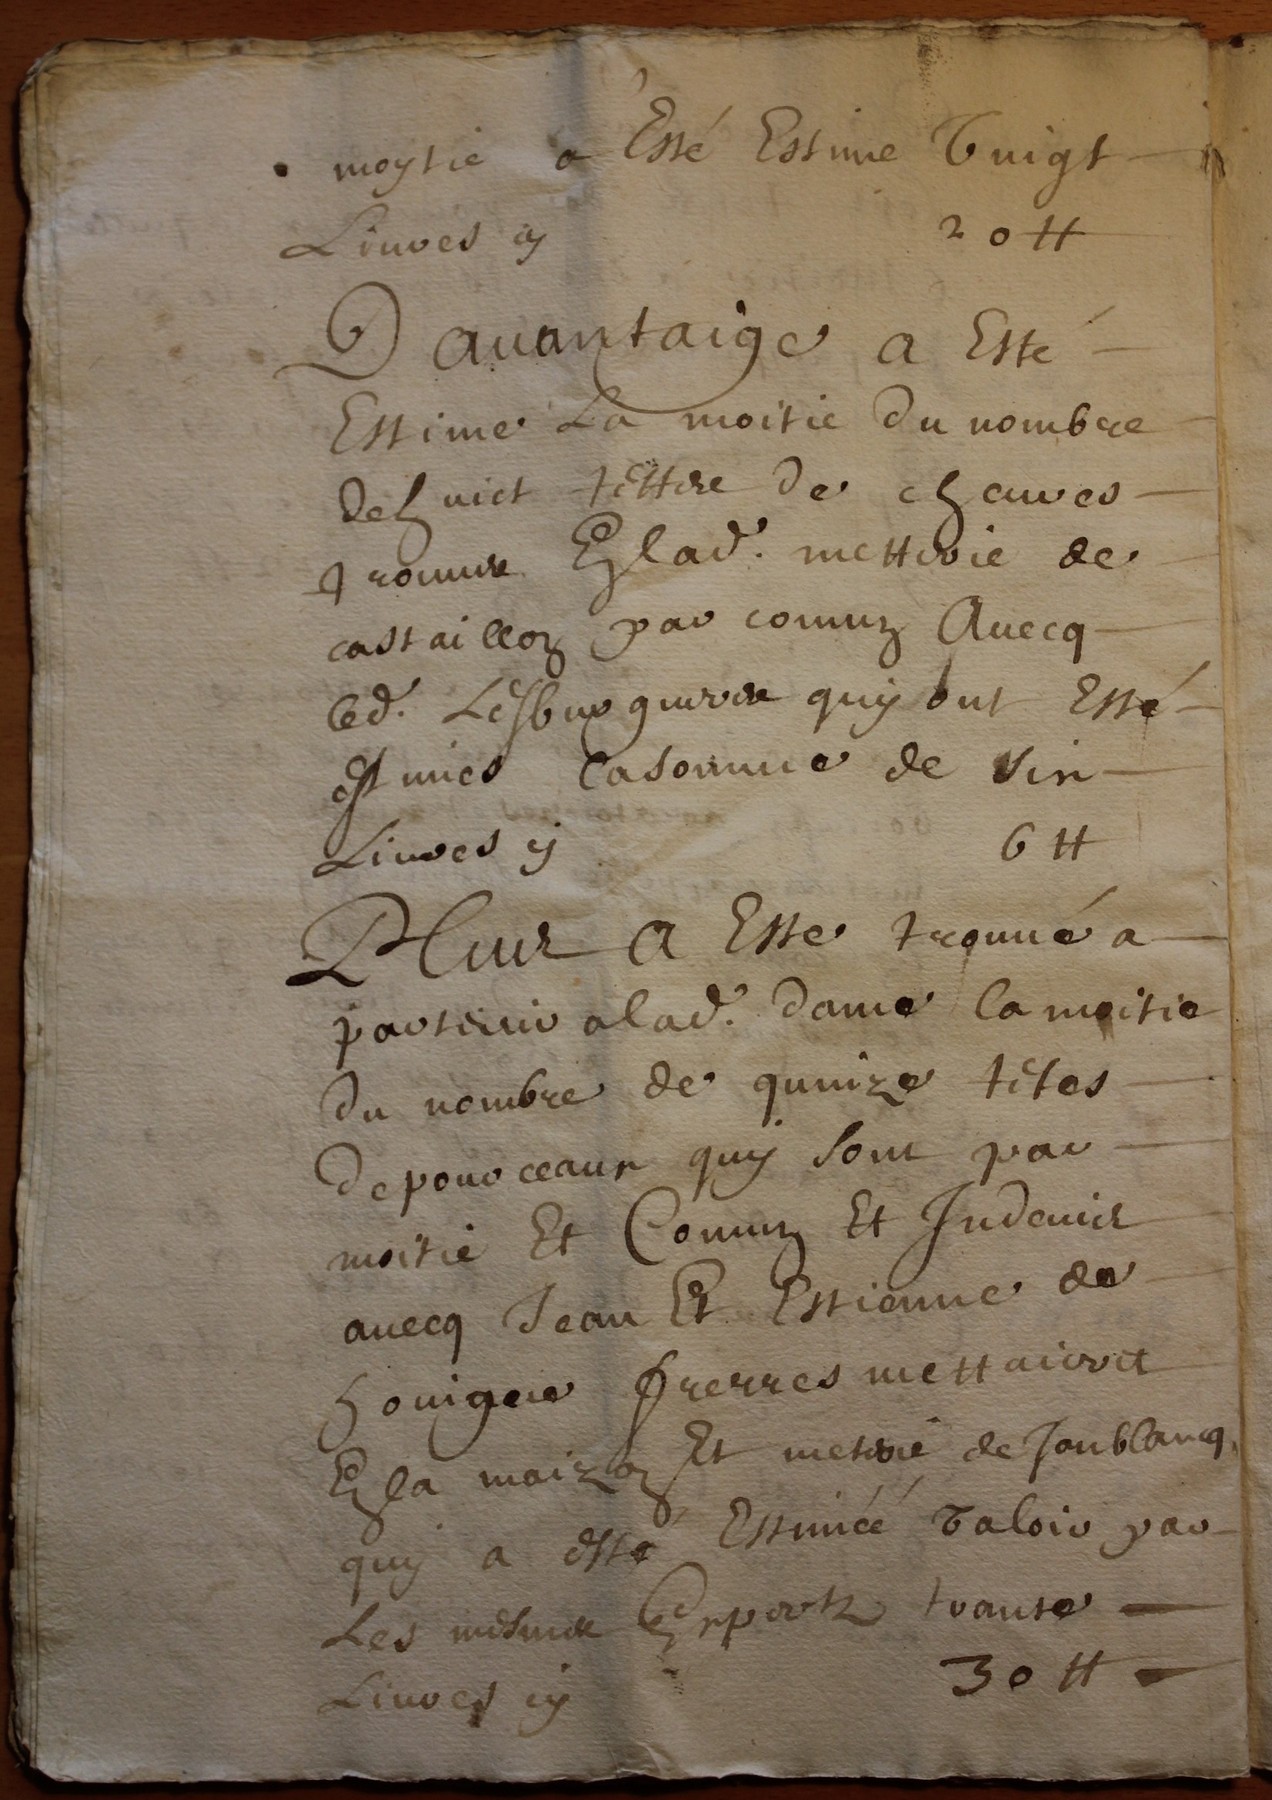 moytie a Esté Estime Vuigt
Liures cy 20 ₶
Dauantaige a Esté
Estime La moitie du nombre
de huict tettes de cheures
trouues En lad. metterie de
castaillon par comun Auecq
led. quy ont Esté
estimés la somme de six
Liures cy 6 ₶
Plus a Esté trouué a
partenir a lad. dame la moitie
du nombre de quinze têtes
de pourceaux quy sont par
moitie Et Comun Et Indeuis
auecq Jean Et Estienne de
frerres mettaiers
En la maizon Et meterie de Jonblancq,
quy a esté Estimée Valoir par
Les mesmes Expertz trante
Liures cy 30 ₶